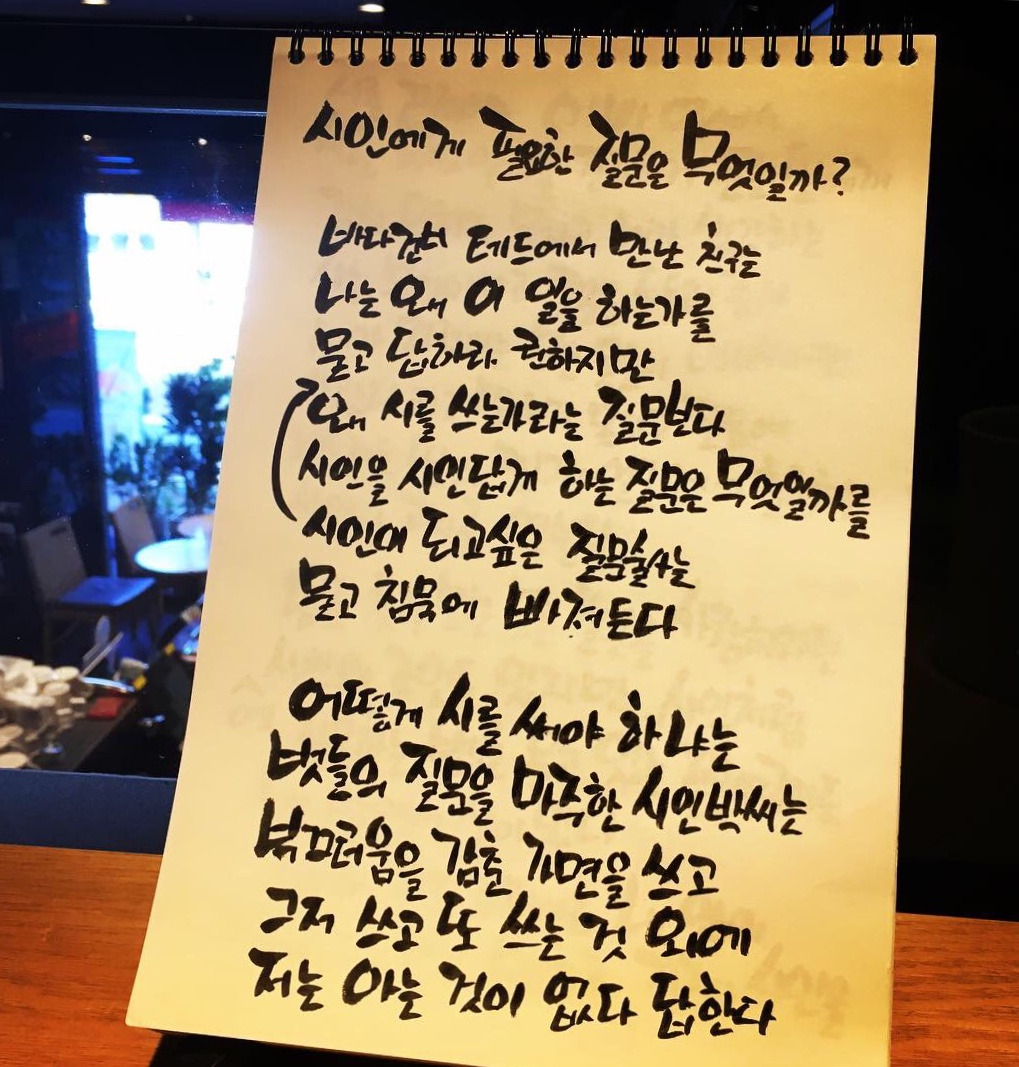 시인에게 필요한 질문은 무엇일까?
바다건너 테드에서 만난 친구는
나는 왜 이 일을 하는가를
묻고 답하라 권하지만
왜 시를 쓰는가라는 질문보다
시인을 시인답게 하는 질문은 무엇일까를
시인이 되고싶은 질문술사는
묻고 침묵에 빠져든다
어떻게 시를 써야 하냐는
벗들의 질문을 마주한 시인박씨는
부끄러움을 감춘 가면을 쓰고
그저 쓰고 또 쓰는 것 외에
저는 아는 것이 없다 답한다